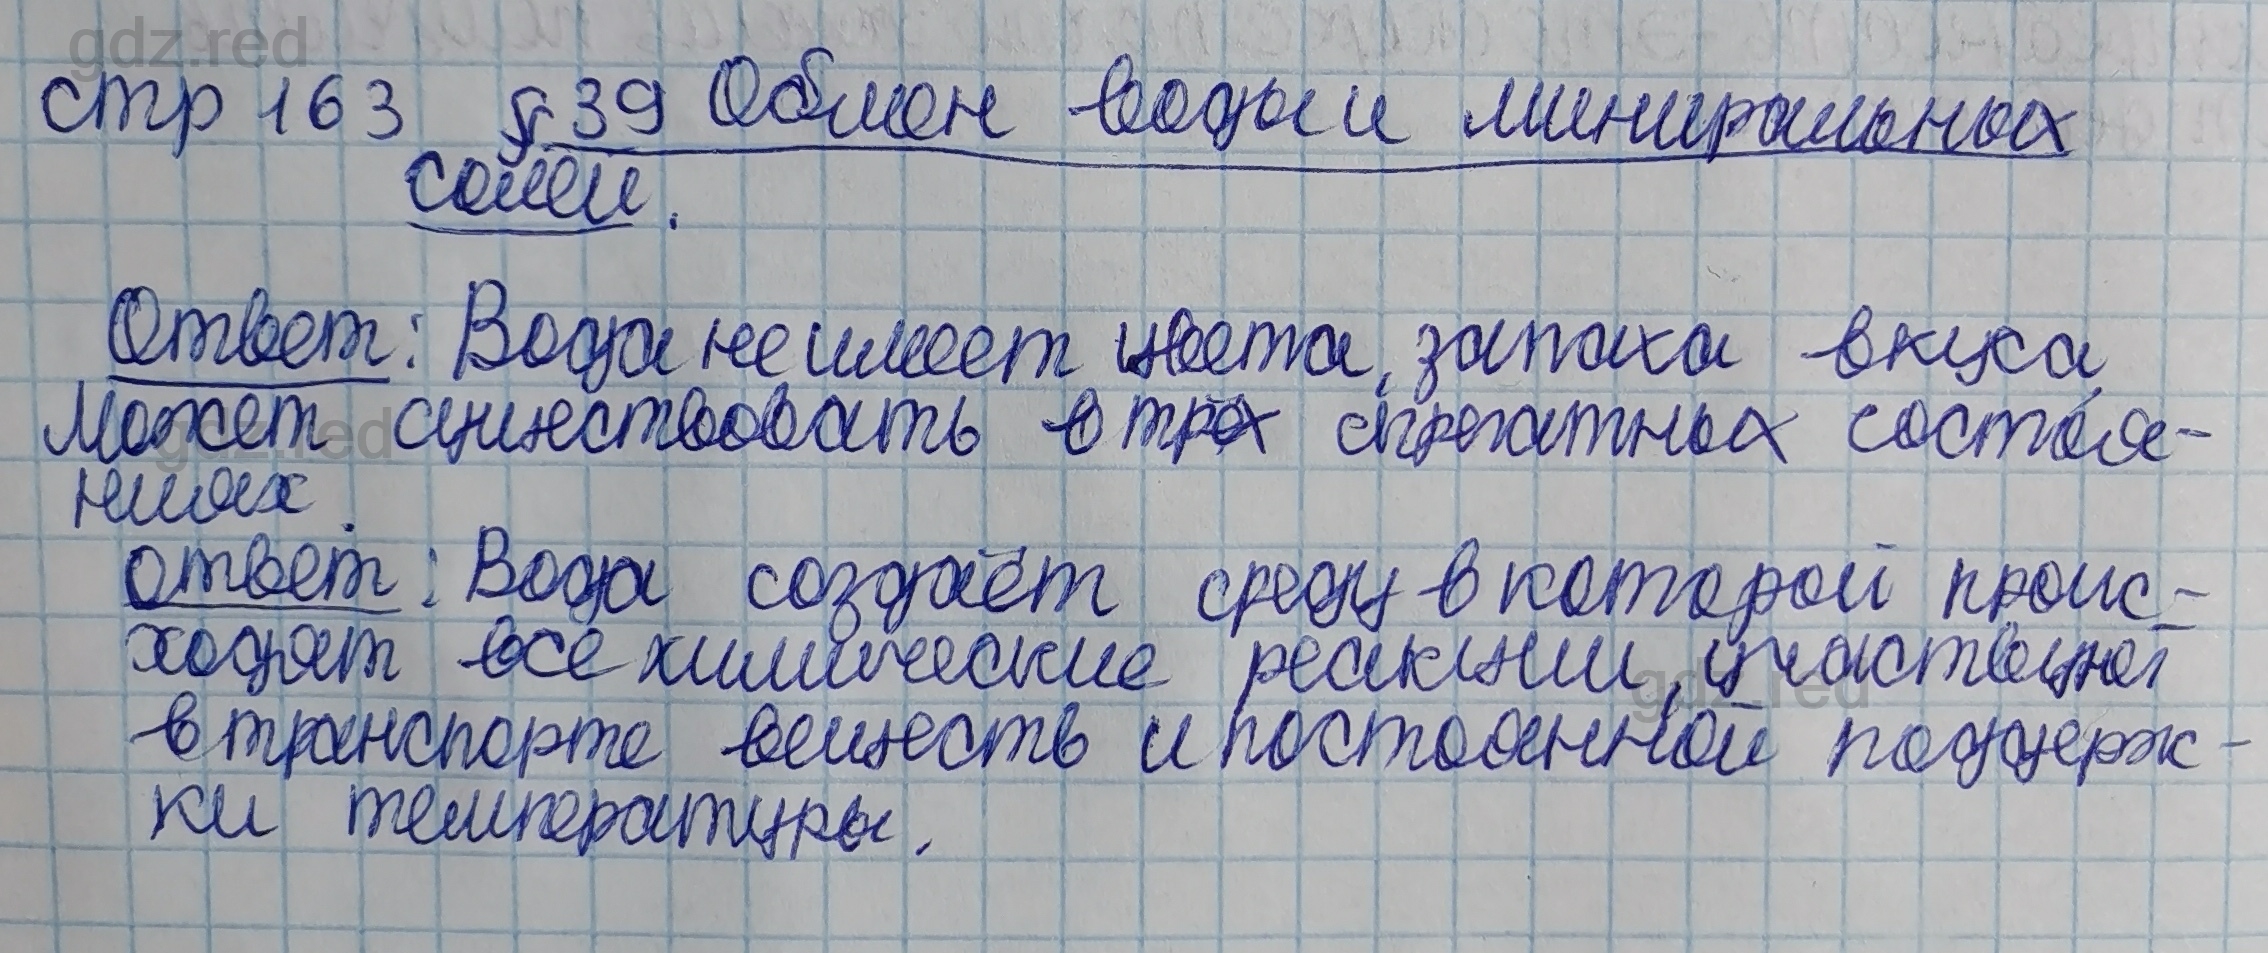 gdz.red
стр 163 § 39 Обмен воды и миниральных
солей.
Ответ: Вода не имеет цвета, запаха вкуса
Может существовать в трёх агрегатных состоя-
gdz.red
ниях.
ответ: Вода создаёт среду в которой проис-
ходят все химические реакции, участвует
gdz.red
в транспорте веществ и постоянной поддерж-
ки температуры.